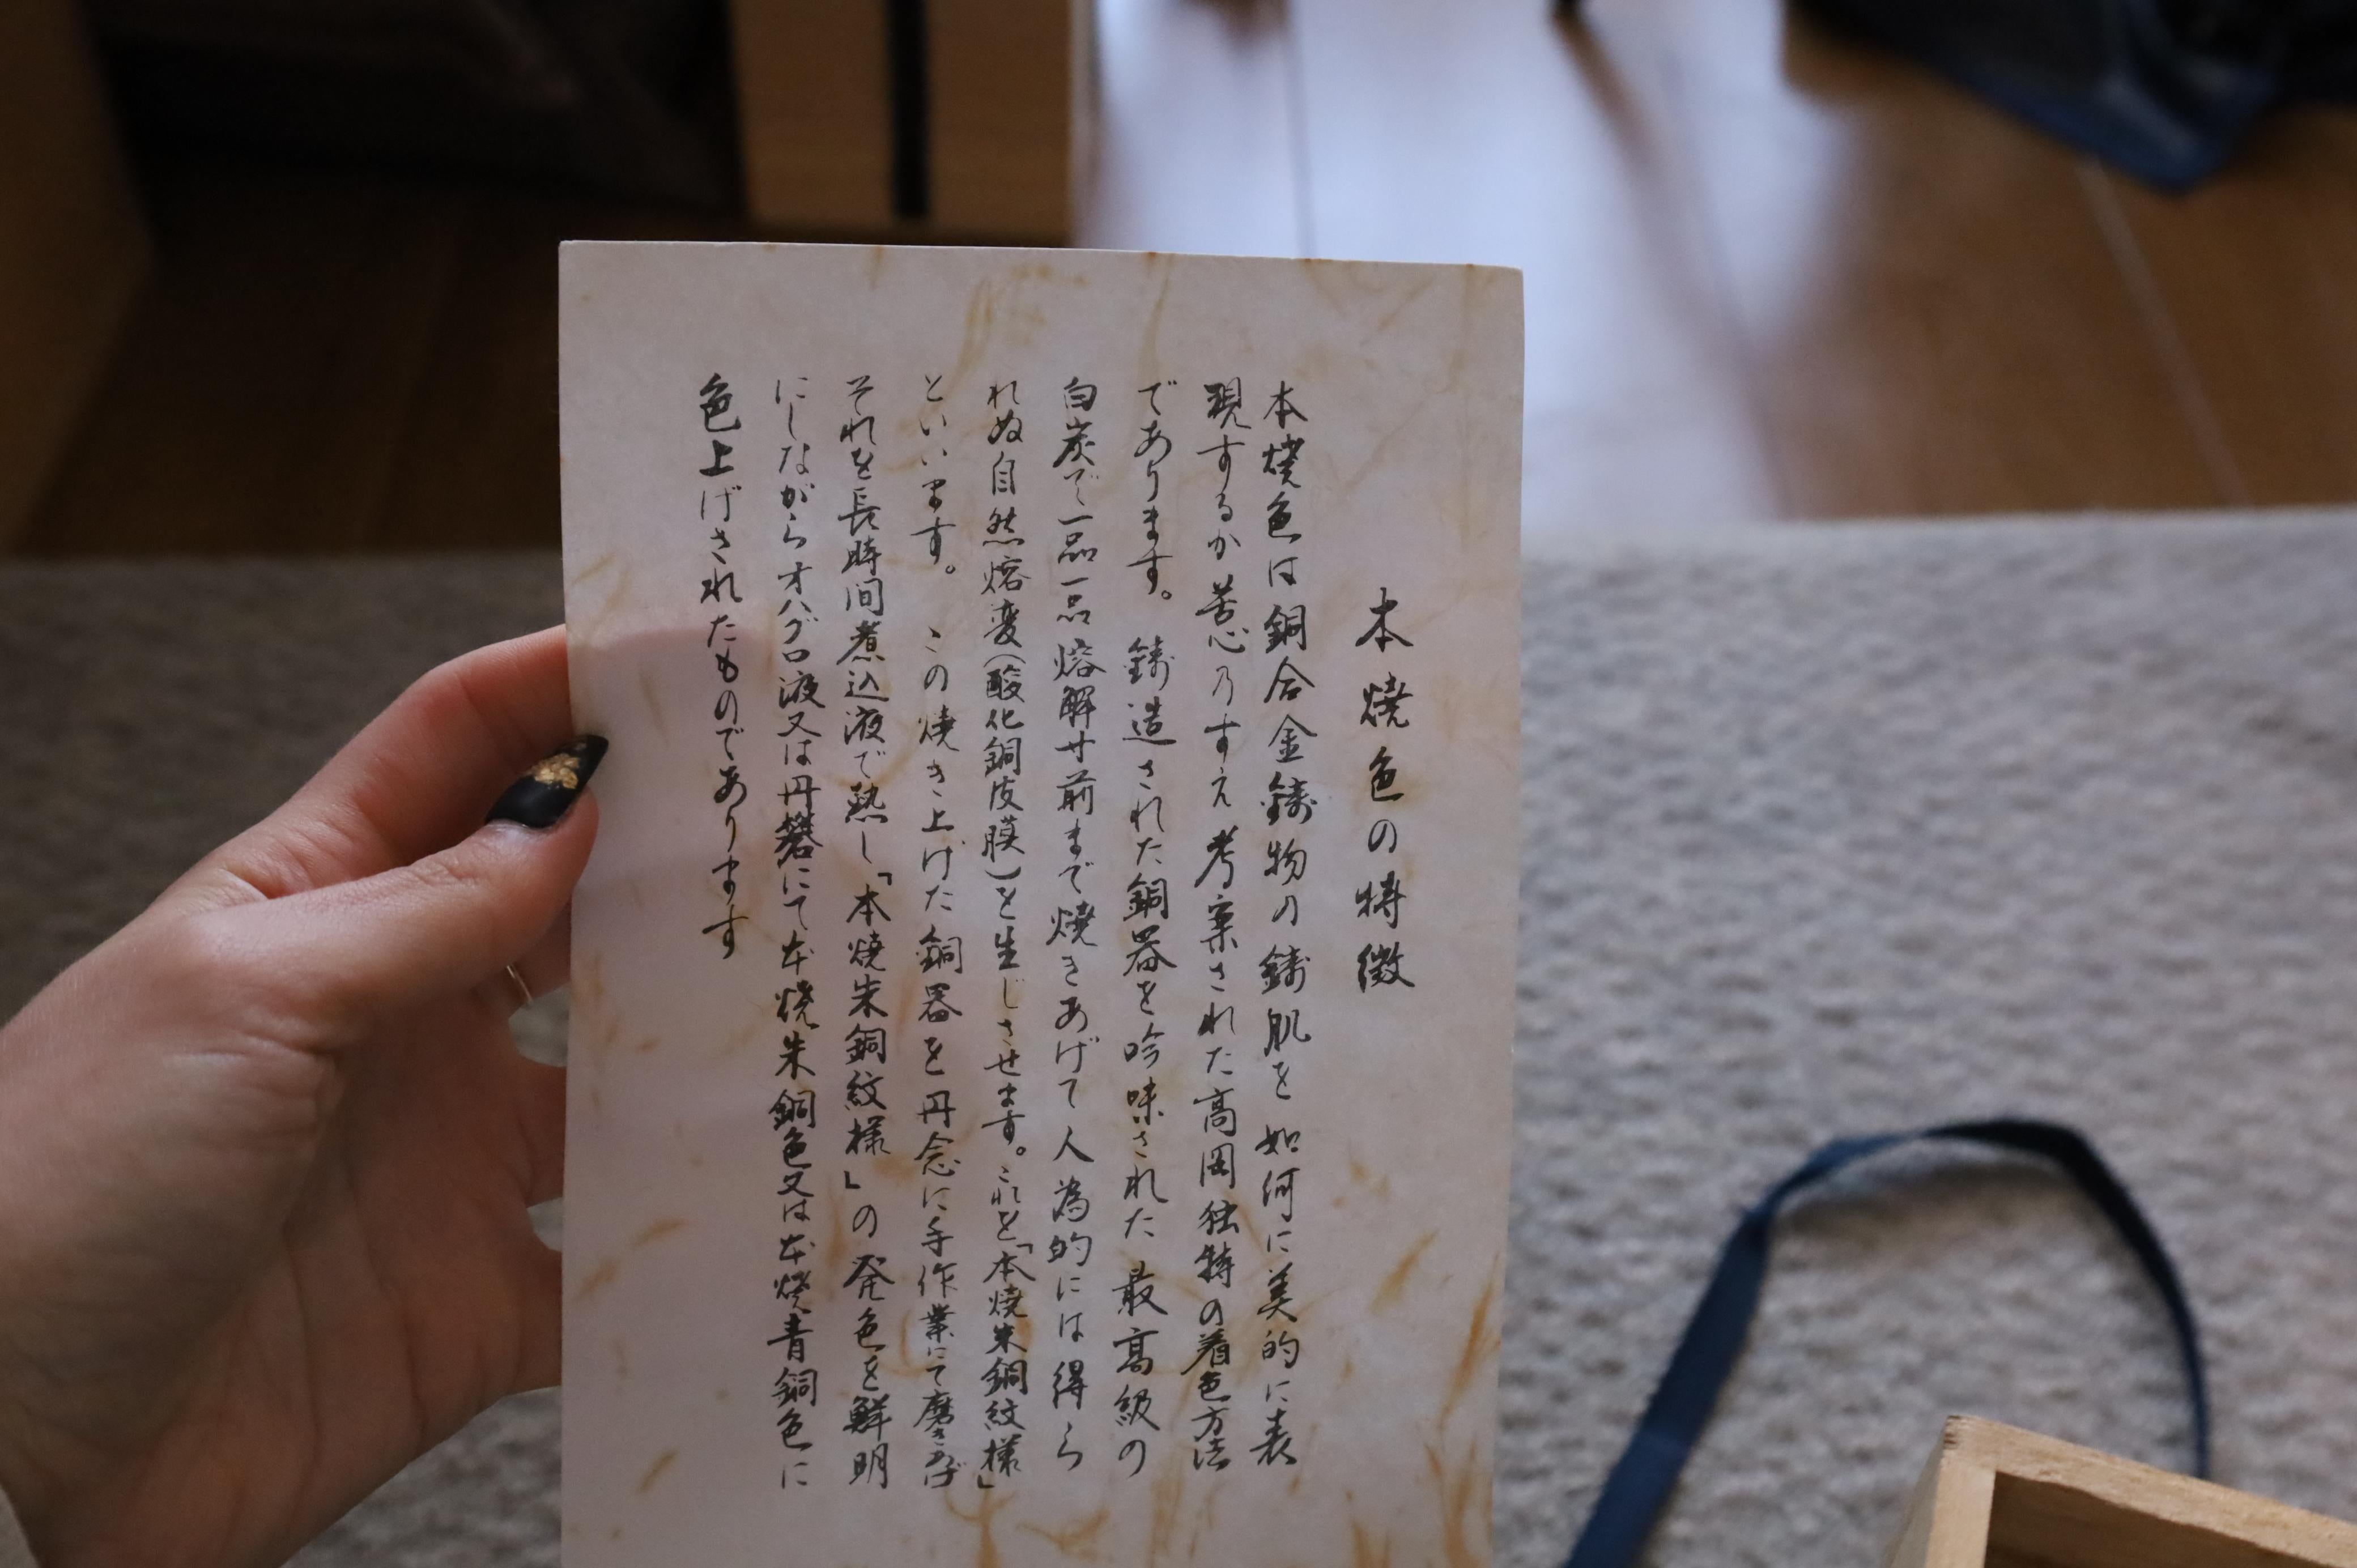 本焼色の特徴
本焼色は銅合金鋳物の鋳肌を如何に美的に表
現するか苦心のすえ考案された高岡独特の着色方法
であります。鋳造された銅器を吟味された最高級の
白炭で一品一品熔解寸前まで焼きあげて人為的には得ら
れぬ自然熔変(酸化銅皮膜)を生じさせます。これを「本焼朱銅紋様」
といいます。この焼き上げた銅器を丹念に手作業にて磨きあげ
それを長時間煮込液で熱し「本焼朱銅紋様」の発色を鮮明
にしながらオハグロ液又は丹礬にて本焼朱銅色又は本焼青銅色に
色上げされたものであります